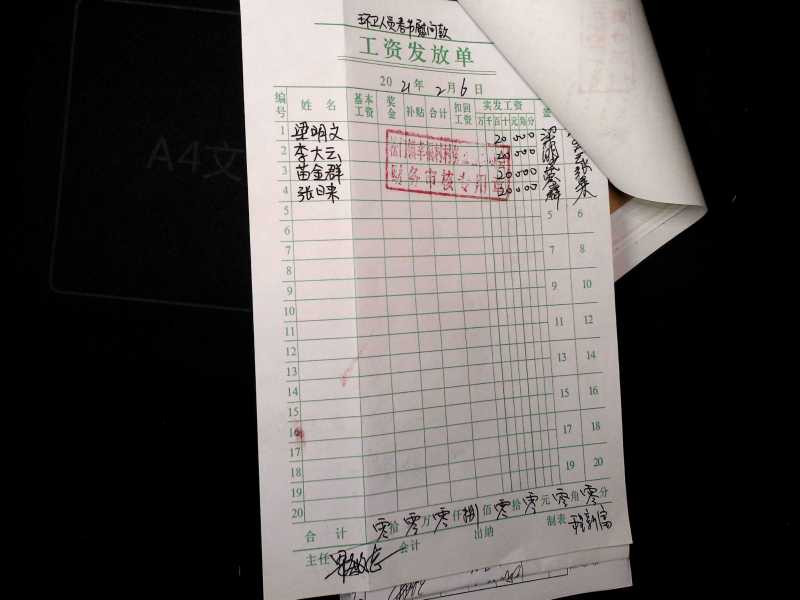 环卫人员春节慰问款
工资发放单
2021年2月6日
编号 姓名 基本工资 奖金 补贴 合计 扣回工资 实发工资
万千百十元角分
1 梁明文 200 00
2 李大云 200 00
3 苗金群 200 00
4 张日来 200 00
财务审核专用章
5 5 6
6
7 7 8
8
9 9 10
10
11 11 12
12
13 13 14
14
15 15 16
16
17 17 18
18
19 19 20
20
合计 零拾零万零仟捌佰零拾零元零角零分
主任 会计 出纳 制表
A4文